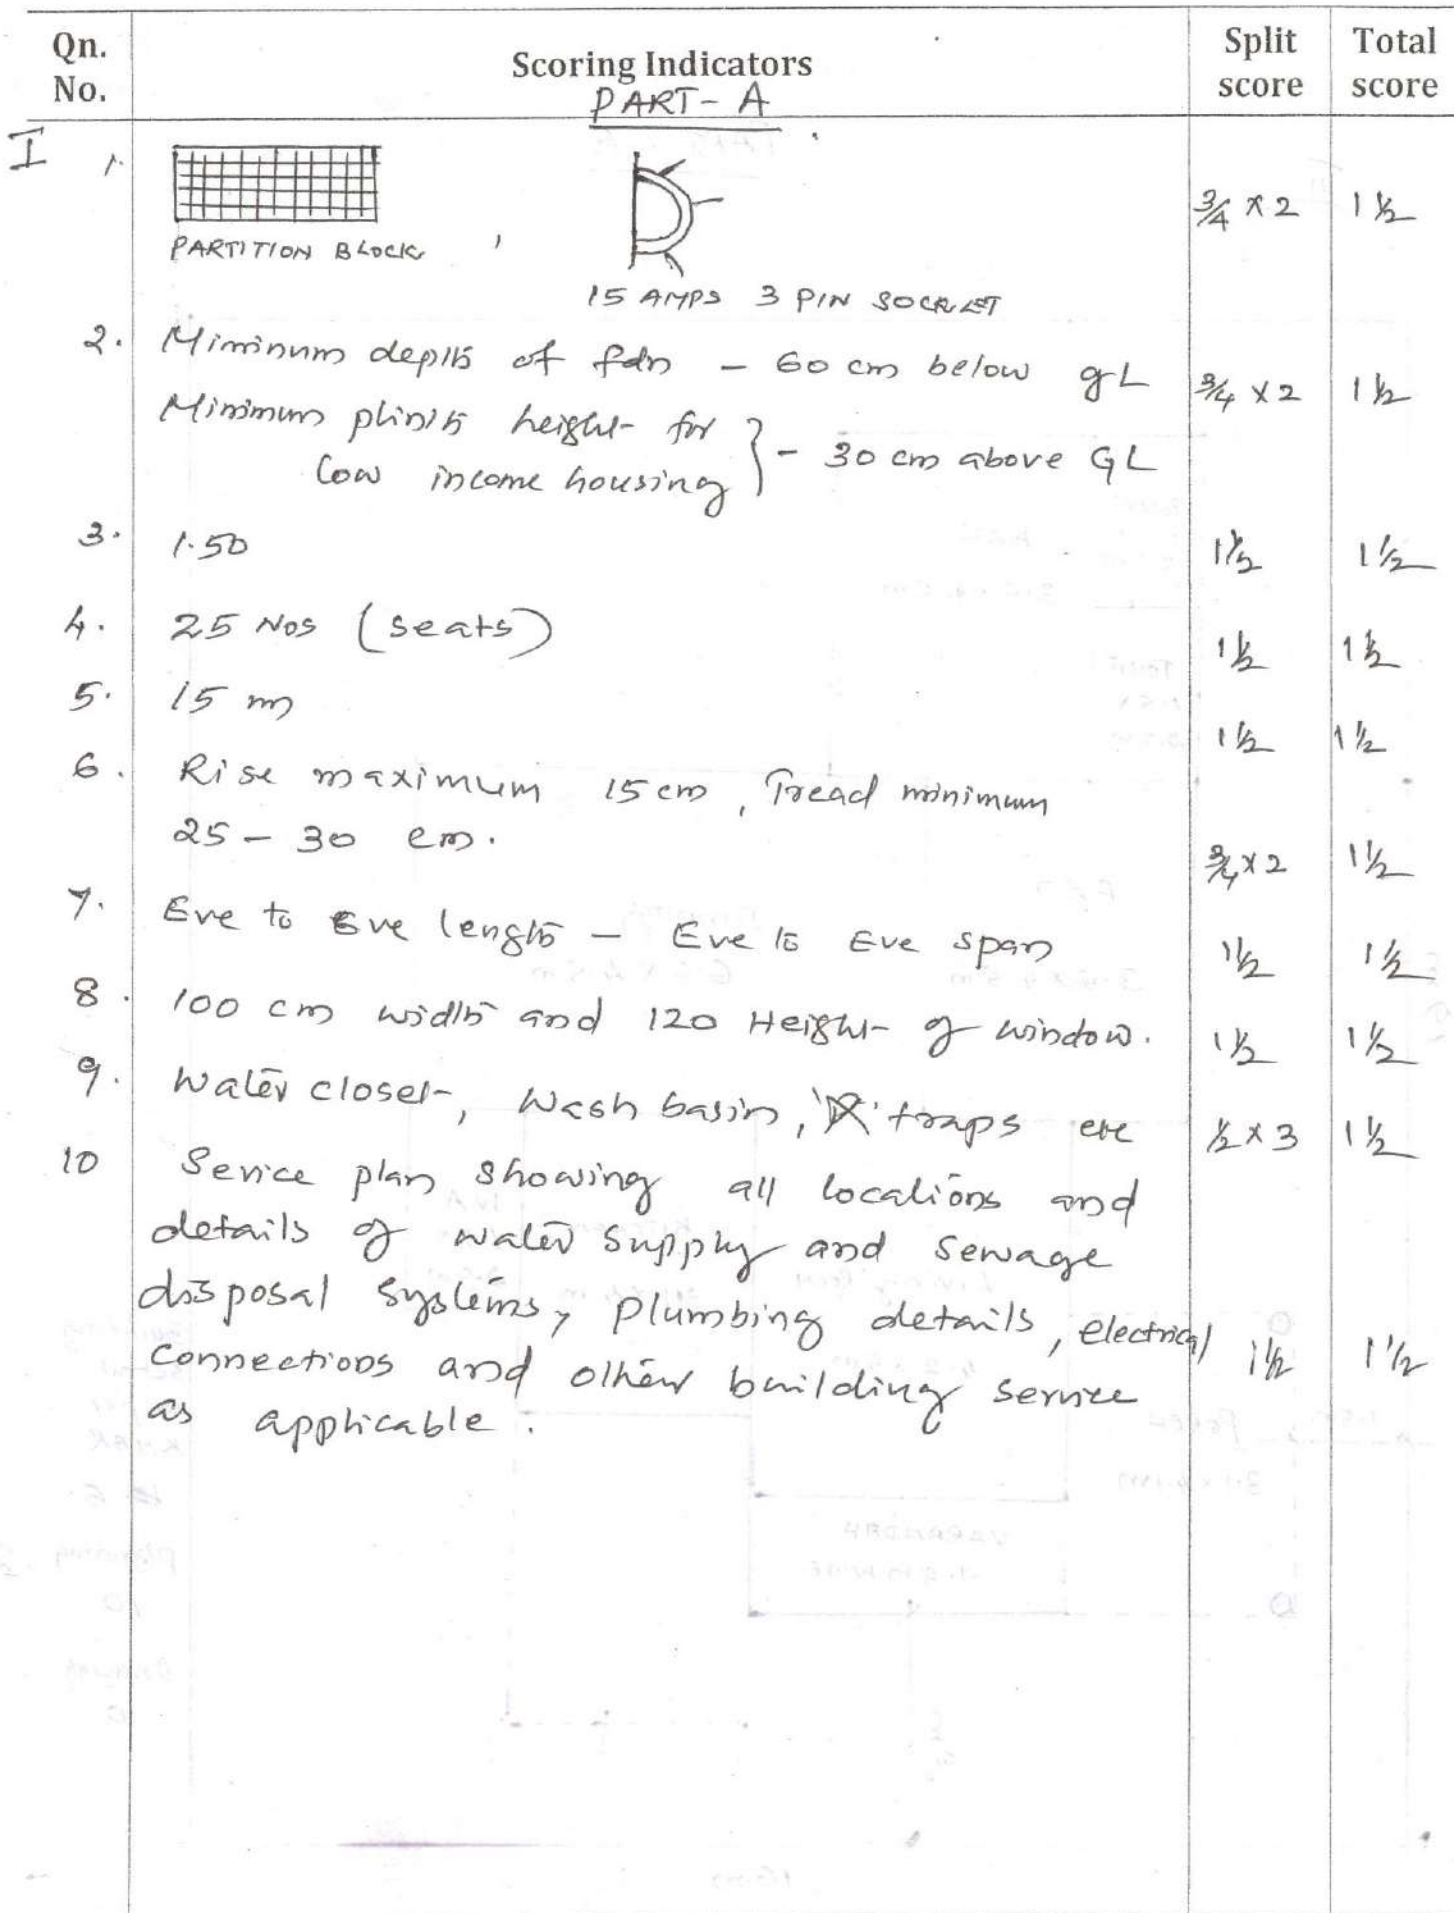 Qn. No. Scoring Indicators Split score Total score
PART - A
I 1.
PARTITION BLOCK ,
15 AMPS 3 PIN SOCKET
3/4 x 2 1 1/2
2. Minimum depth of fdn - 60 cm below gL 3/4 x 2 1 1/2
Minimum plinth height for
low income housing } - 30 cm above GL
3. 1.50 1 1/2 1 1/2
4. 25 Nos (seats) 1 1/2 1 1/2
5. 15 m 1 1/2 1 1/2
6. Rise maximum 15 cm, Tread minimum
25 - 30 cm. 3/4 x 2 1 1/2
7. Eve to Eve length - Eve to Eve span 1 1/2 1 1/2
8. 100 cm width and 120 Height of window. 1 1/2 1 1/2
9. Water closet, Wash basin, traps etc 1/2 x 3 1 1/2
10 Service plan showing all locations and
details of water supply and sewage
disposal systems, plumbing details, electrical
connections and other building service 1 1/2 1 1/2
as applicable.